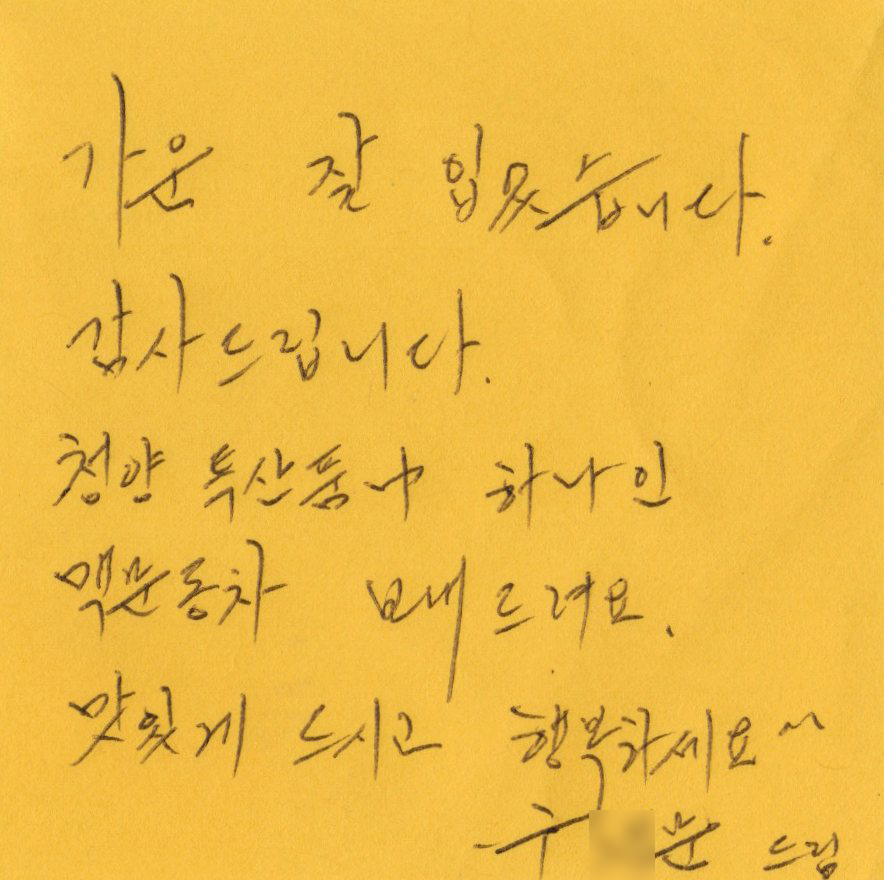 가운 잘 입었습니다.
감사드립니다.
청양 특산품中 하나인
맥문동차 보내드려요.
맛있게 드시고 행복하세요^^
드림